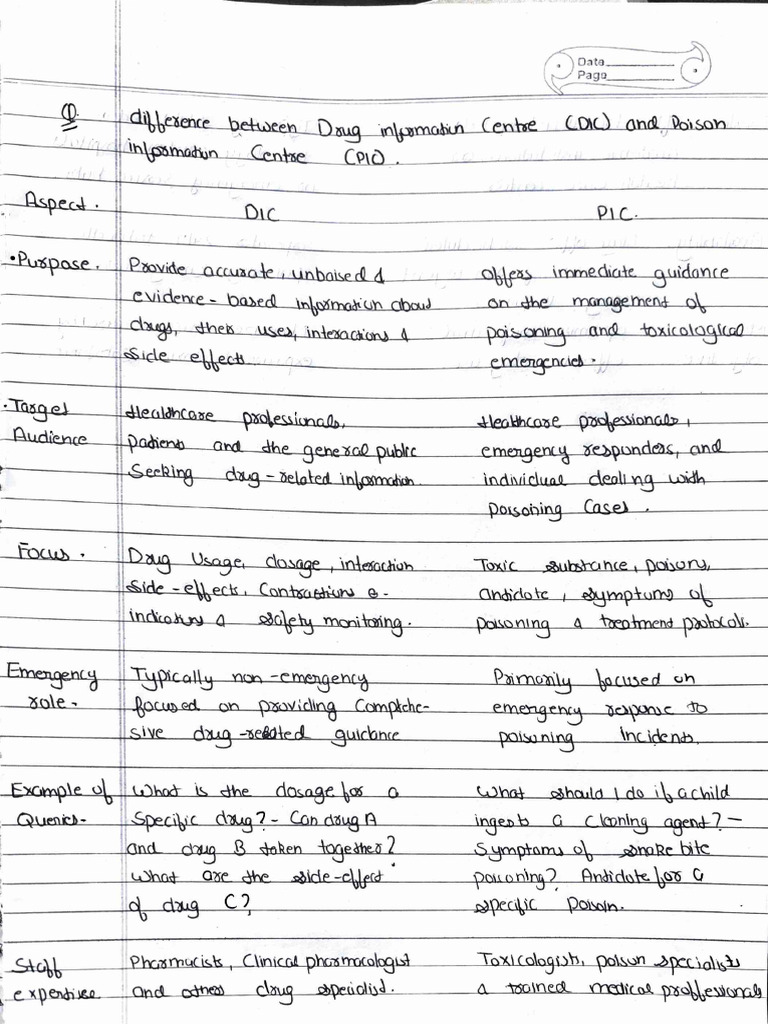 Date
Page
Q. difference between Drug information Centre (DIC) and Poison
information Centre (PIC).
Aspect. DIC PIC.
•Purpose. Provide accurate, unbaised & offers immediate guidance
evidence-based information about on the management of
drugs, their uses, interactions & poisoning and toxicological
side effects emergencies.
•Target Healthcare professionals, Healthcare professionals,
Audience patients and the general public emergency responders, and
Seeking drug-related information individual dealing with
poisoning Cases.
Focus. Drug Usage, dosage, interaction Toxic substance, poisons,
side-effects, antidote, symptoms of
& safety monitoring. poisoning & treatment protocols.
Emergency Typically non-emergency Primarily focused on
role. focused on providing emergency response to
sive drug-related guidance poisoning incidents.
Example of What is the dosage for a What should I do if a child
Queries- Specific drug?- Can drug A ingests a cleaning agent?-
and drug B taken together? Symptoms of snake bite
What are the side-effect poisoning? Antidate for a
of drug C? specific poison.
Staff Pharmacists, Clinical pharmacologist Toxicologists, poison specialists
expertise and others drug specialist. & trained medical proffessionals